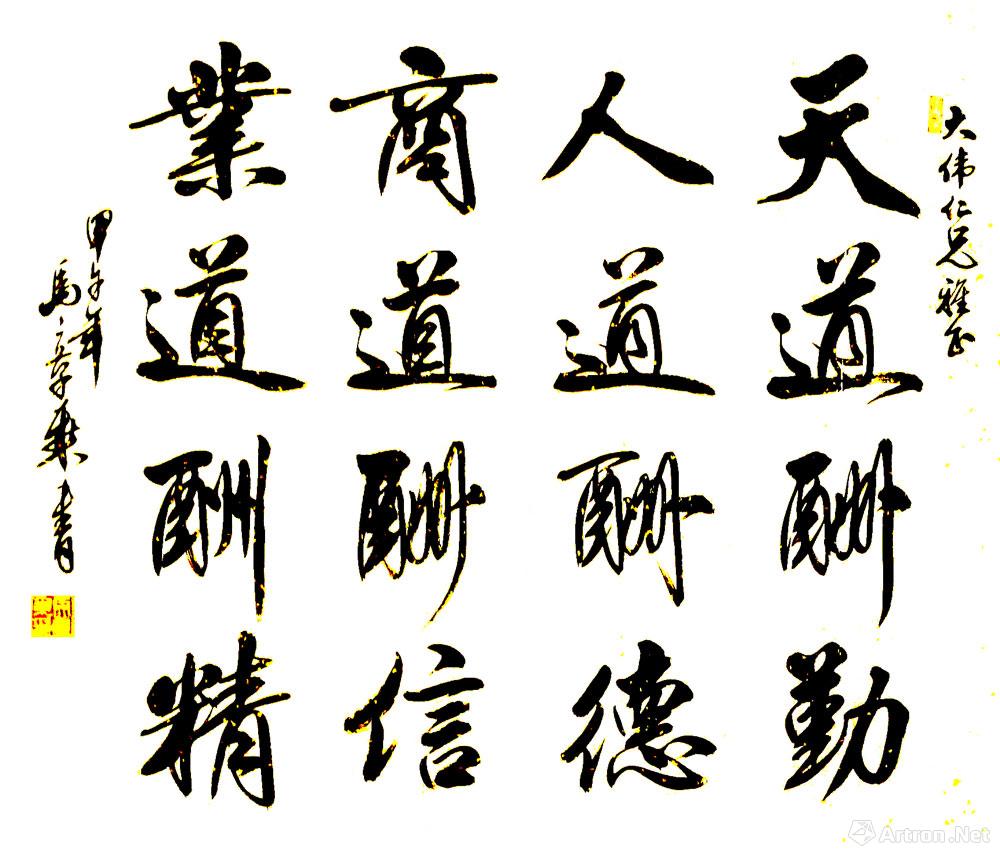 大伟仁兄雅正
天道酬勤
人道酬德
商道酬信
業道酬精
甲午年
馬章乘書
Artron.Net